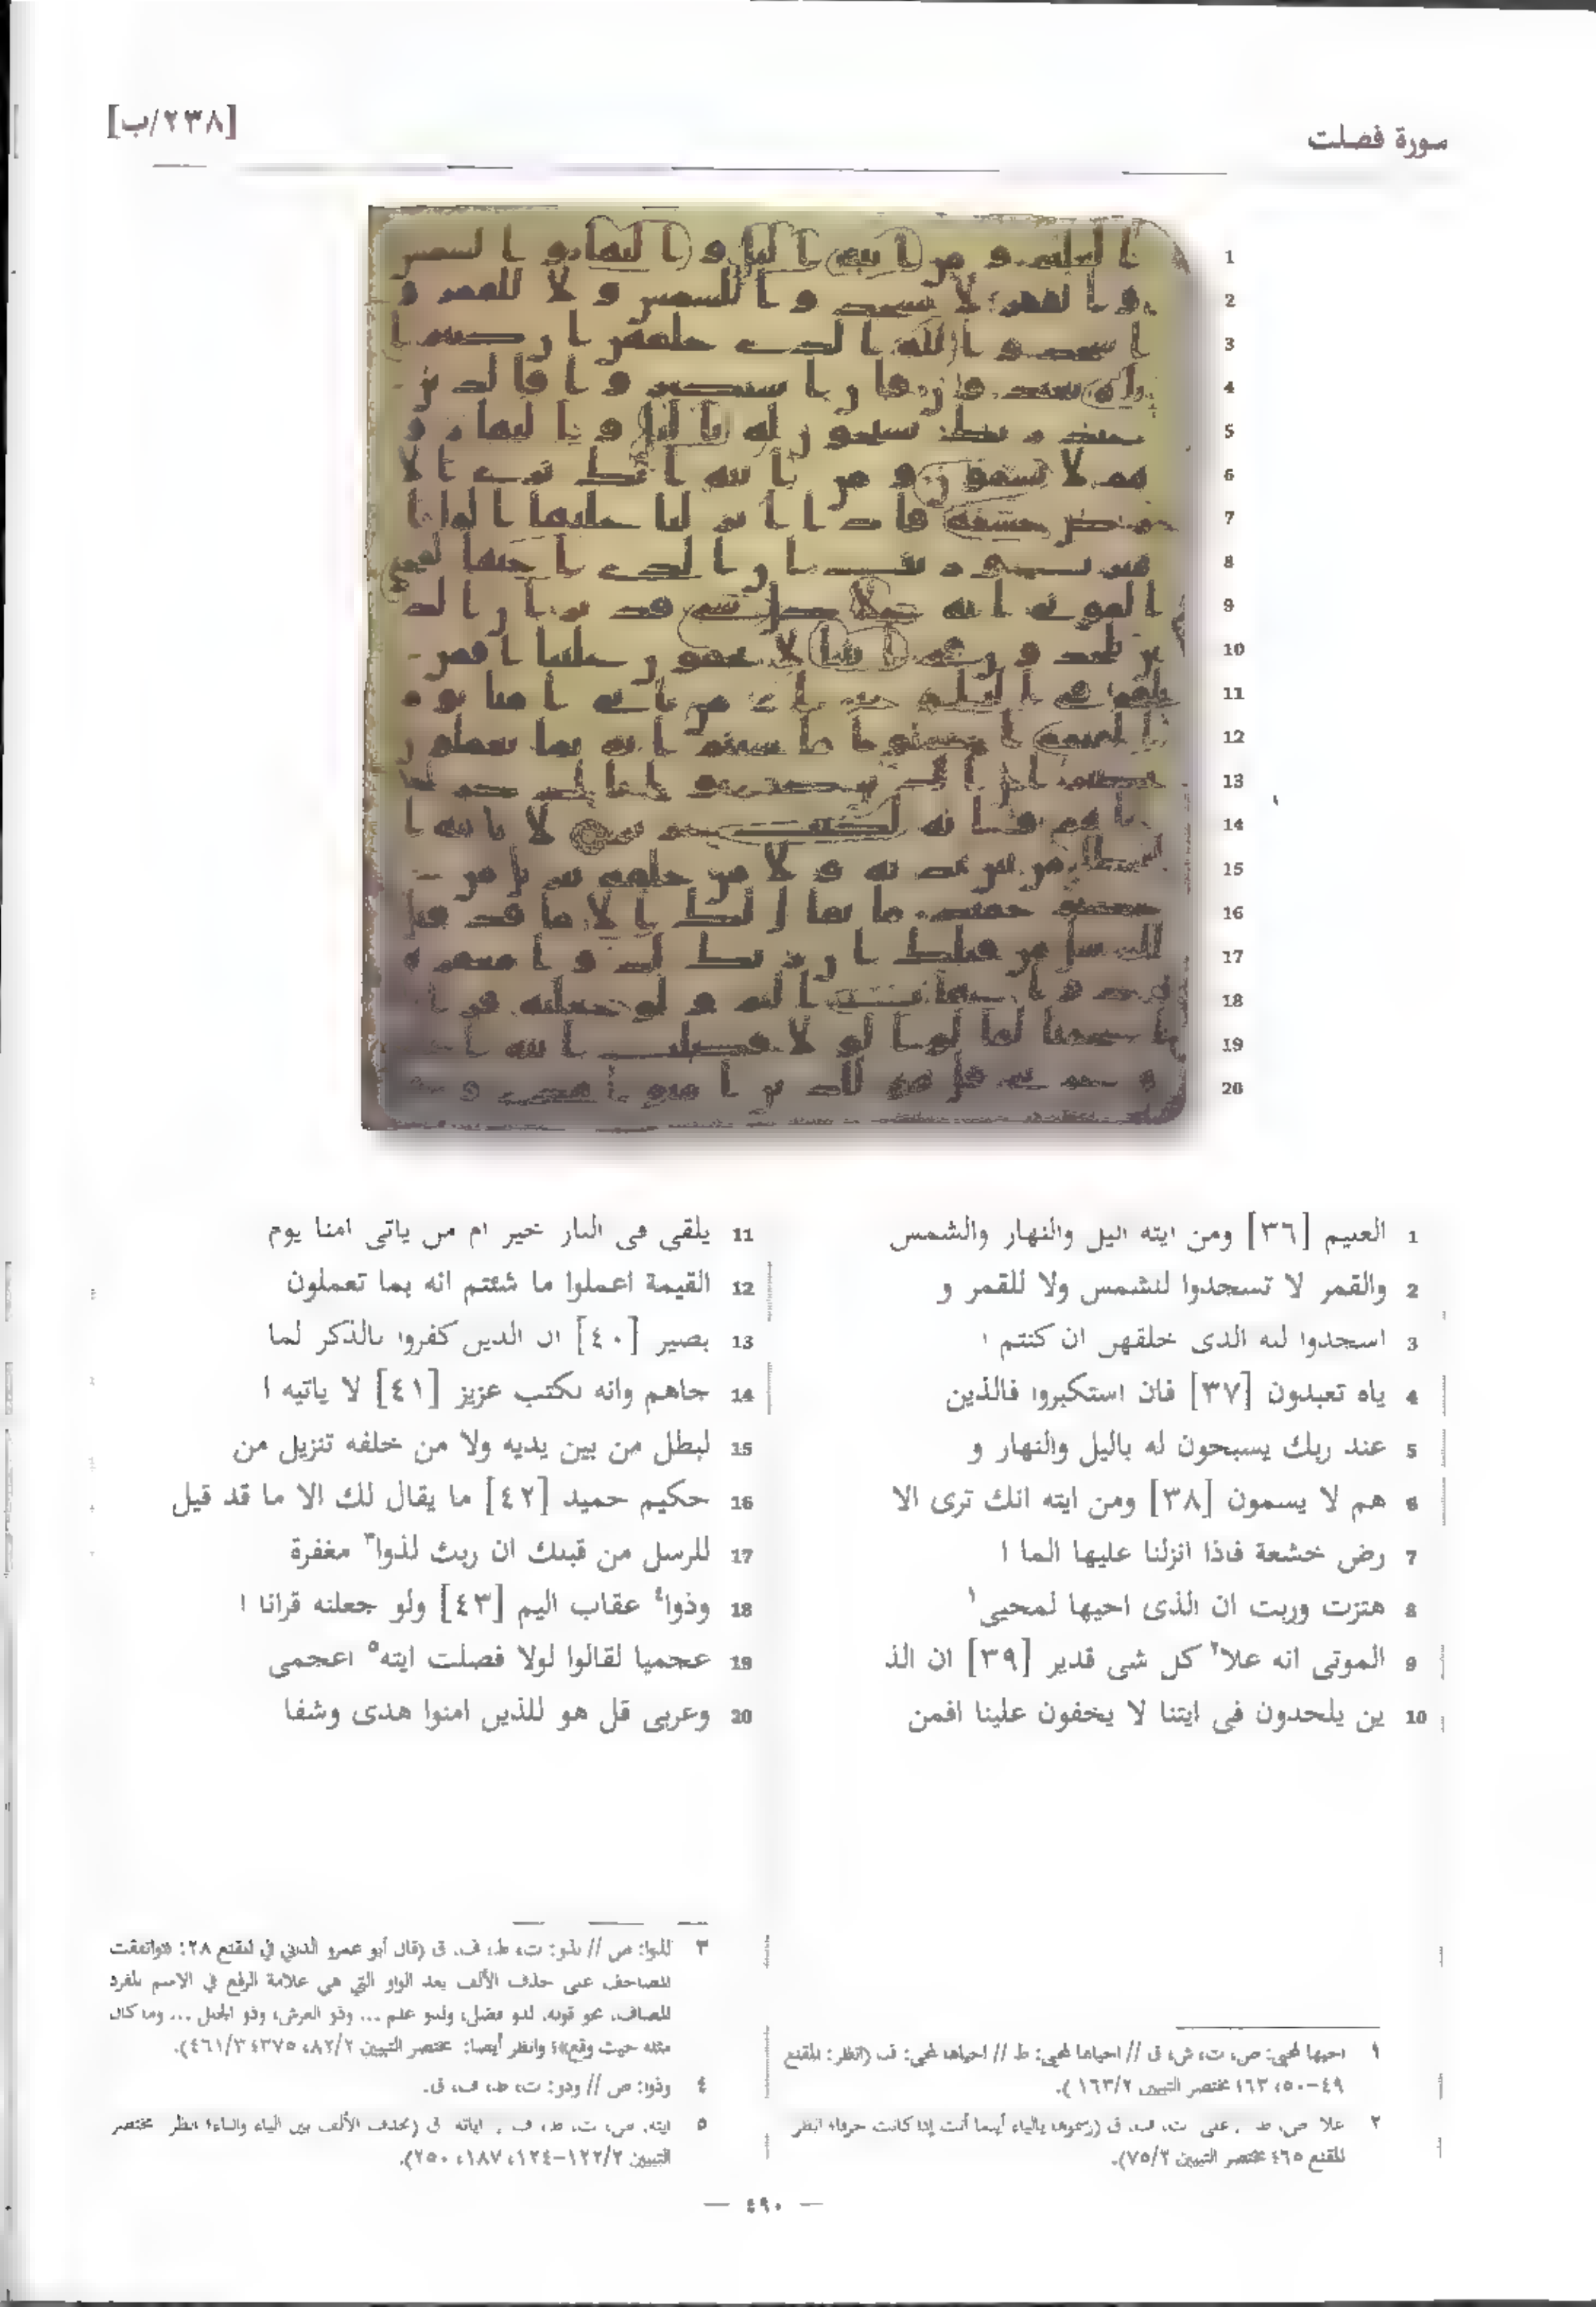 سورة فصلت
[٢٣٨/ب]
1
2
3
4
5
6
7
8
9
10
11
12
13
14
15
16
17
18
19
20
1 العليم [٣٦] ومن ايته اليل والنهار والشمس
2 والقمر لا تسجدوا للشمس ولا للقمر و
3 اسجدوا لله الذى خلقهن ان كنتم ا
4 ياه تعبدون [٣٧] فان استكبروا فالذين
5 عند ربك يسبحون له باليل والنهار و
6 هم لا يسمون [٣٨] ومن ايته انك ترى الا
7 رض خشعة فاذا انزلنا عليها الما ا
8 هتزت وربت ان الذى احيها لمحيى١
9 الموتى انه علا٢ كل شى قدير [٣٩] ان الذ
10 ين يلحدون فى ايتنا لا يخفون علينا افمن
11 يلقى فى النار خير ام من ياتى امنا يوم
12 القيمة اعملوا ما شئتم انه بما تعملون
13 بصير [٤٠] ان الذين كفروا بالذكر لما
14 جاهم وانه لكتب عزيز [٤١] لا ياتيه ا
15 لبطل من بين يديه ولا من خلفه تنزيل من
16 حكيم حميد [٤٢] ما يقال لك الا ما قد قيل
17 للرسل من قبلك ان ربك لذوا٣ مغفرة
18 وذوا٤ عقاب اليم [٤٣] ولو جعلنه قرانا ا
19 عجميا لقالوا لولا فصلت ايته٥ اعجمى
20 وعربى قل هو للذين امنوا هدى وشفا
١ احيها لمحيى: ص، ت، ش، ق // احياها لمحيى: ط // احياها لمحى: ف (انظر: المقنع
٤٩-٥٠، ٦٣؛ مختصر التبيين ١٦٣/٢).
٢ علا: ص، ط. على: ت، ف، ق (رسموها بالياء أينما أتت إذا كانت حرفا؛ انظر:
المقنع ٦٥؛ مختصر التبيين ٧٥/٢).
٣ لذوا: ص // لذو: ت، ط، ف، ق (قال أبو عمرو الداني في المقنع ٢٨: «واتفقت
المصاحف على حذف الألف بعد الواو التي هي علامة الرفع في الاسم المفرد
المضاف، نحو قوله: لذو فضل، ولذو علم ... وذو العرش، وذو الجلال ... وما كان
مثله حيث وقع»؛ وانظر أيضا: مختصر التبيين ٨٢/٢، ٤٣٧٥ ٤٦١/٣).
٤ وذوا: ص // وذو: ت، ط، ف، ق.
٥ ايته: ص، ت، ط، ف. اياته: ق (بحذف الألف بين الياء والتاء؛ انظر: مختصر
التبيين ١٢٢/٢-١٢٤، ١٨٧، ٢٥٠).
— ٤٩٠ —